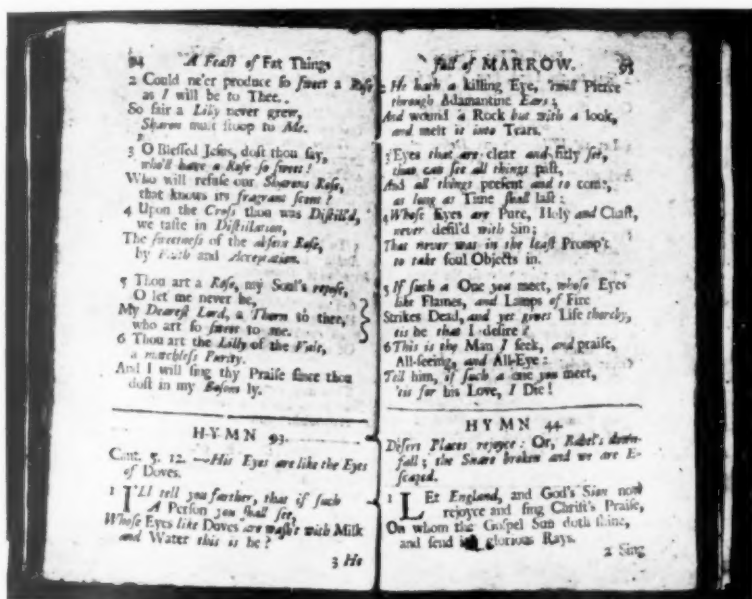 94 A Feast of Fat Things
2 Could ne'er produce so sweet a Rose
as I will be to Thee.
So fair a Lilly never grew,
Sharon must stoop to Me.
3 O Blessed Jesus, dost thou say,
who'll have a Rose so sweet?
Who will refuse our Sharons Rose,
that knows its fragrant scent?
4 Upon the Cross thou was Distill'd,
we taste in Distillation,
The sweetness of the Rose,
by Faith and Acceptation.
5 Thou art a Rose, my Soul's repose,
O let me never be,
My Dearest Lord, a Thorn to thee,
who art so sweet to me.
6 Thou art the Lilly of the Vale,
a matchless Purity.
And I will sing thy Praise since thou
dost in my Bosom ly.
HYMN 93.
Cant. 5. 12. —His Eyes are like the Eyes
of Doves.
1 I'Ll tell you farther, that if such
A Person you shall see,
Whose Eyes like Doves are wash't with Milk
and Water this is he?
3 He
full of MARROW. 95
He hath a killing Eye, 'twill Pierce
through Adamantine Ears;
And wound a Rock but with a look,
and melt it into Tears.
3 Eyes that are clear and fitly set,
that can see all things past,
And all things present and to come,
as long as Time shall last:
4 Whose Eyes are Pure, Holy and Chast,
never defil'd with Sin;
That never was in the least Promp't
to take foul Objects in.
5 If such a One you meet, whose Eyes
like Flames, and Lamps of Fire
Strikes Dead, and yet gives Life thereby,
tis he that I desire?
6 This is the Man I seek, and praise,
All-seeing, and All-Eye:
Tell him, if such a one you meet,
'tis for his Love, I Die!
HYMN 44.
Desert Places rejoyce: Or, Babel's down-
fall; the Snare broken and we are E-
scaped.
1 LEt England, and God's Sion now
rejoyce and sing Christ's Praise,
On whom the Gospel Sun doth shine,
and send glorious Rays.
2 Sing